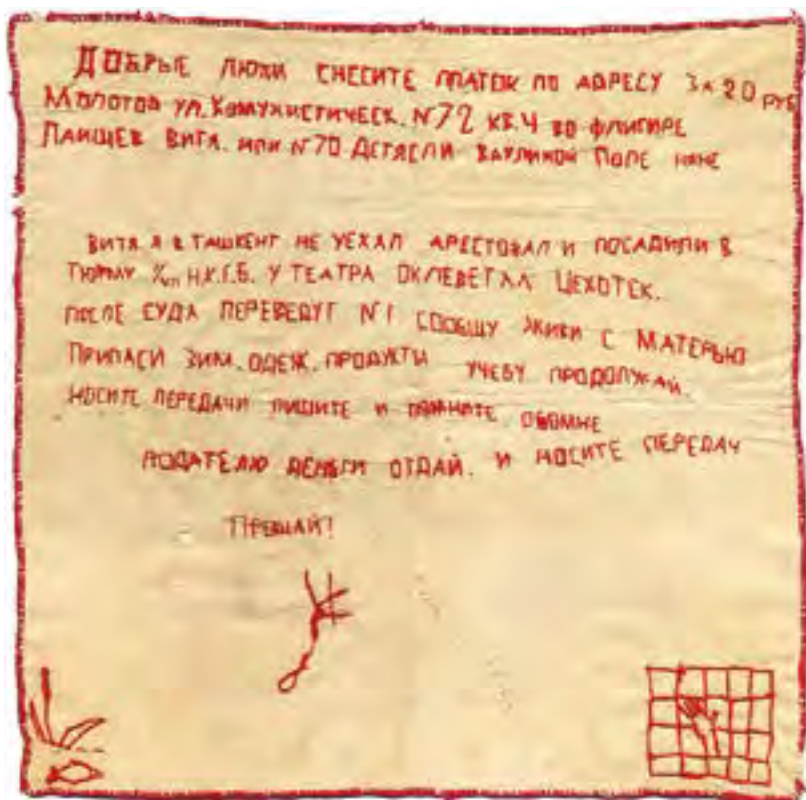 ДОБРЫЕ ЛЮДИ СНЕСИТЕ ПЛАТОК ПО АДРЕСУ ЗА 20 РУБ
МОЛОТОВ УЛ. КОМУНИСТИЧЕСК. N72 КВ.4 ВО ФЛИГИРЕ
ВИТЯ. ИЛИ N70 ДЕТЯСЛИ ВАУЛИНОЙ ПОЛЕ НЯНЕ
ВИТЯ Я В ТАШКЕНТ НЕ УЕХАЛ АРЕСТОВАЛ И ПОСАДИЛИ В
ТЮРМУ Н.К.Г.Б. У ТЕАТРА ОКЛЕВЕТАЛ
ПОСЛЕ СУДА ПЕРЕВЕДУТ N1 СООБЩУ ЖИВИ С МАТЕРЬЮ
ПРИПАСИ ЗИМ. ОДЕЖ. ПРОДУКТЫ УЧЕБУ ПРОДОЛЖАЙ.
НОСИТЕ ПЕРЕДАЧИ ПИШИТЕ И ПОМНИТЕ ОБОМНЕ
ПОДАТЕЛЮ ДЕНЬГИ ОТДАЙ. И НОСИТЕ ПЕРЕДАЧ
ПРОЩАЙ!